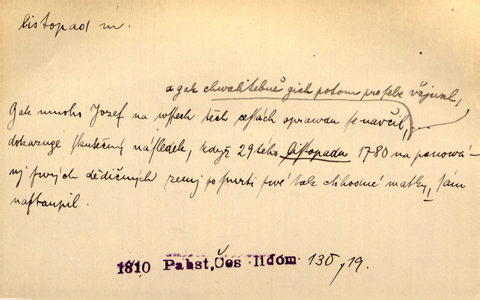 listopad m.
a gak chwalitebně gich potom pro sebe užjwal,
Gak mnoho Jozef na wssech těch cestách oprawdu se naučil,
dokazuge skutečný následek, když 29tého listopadu 1780 na panowá-
nj swých dědičných zemj po smrti swé tak ctihodné matky, sám
nastaupil.
1810 Pabst, Čes lidom 130, 19.